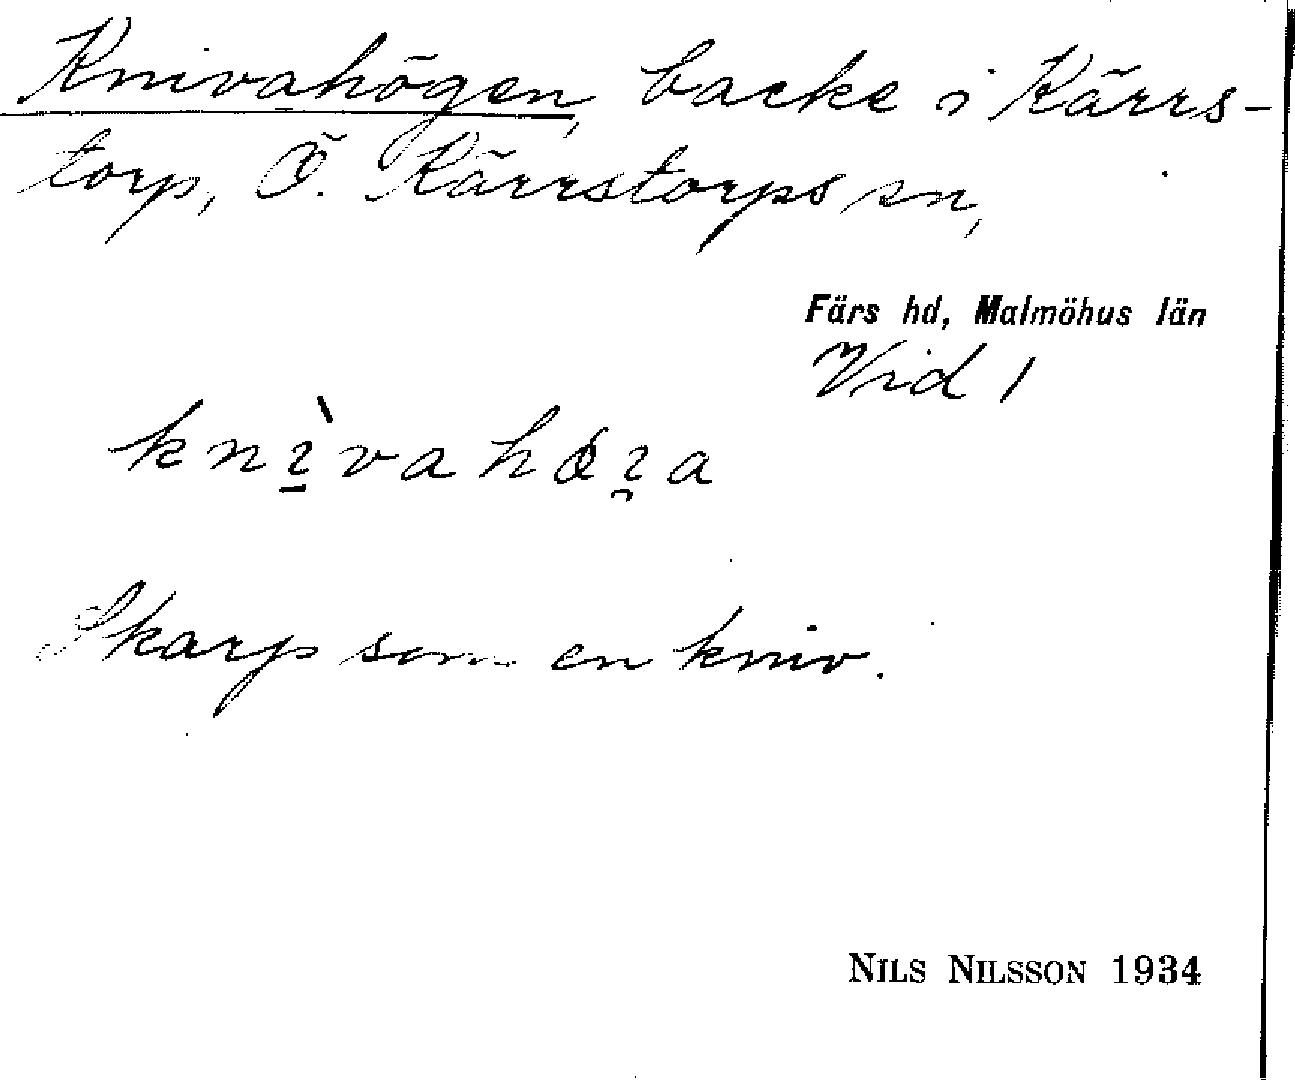 Knivahögen, backe i Kärrs-
torp, Ö. Kärrstorps sn,
Färs hd, Malmöhus län
Vid 1
knı̱̀vahǿı̯a
Skarp som en kniv.
NILS NILSSON 1934